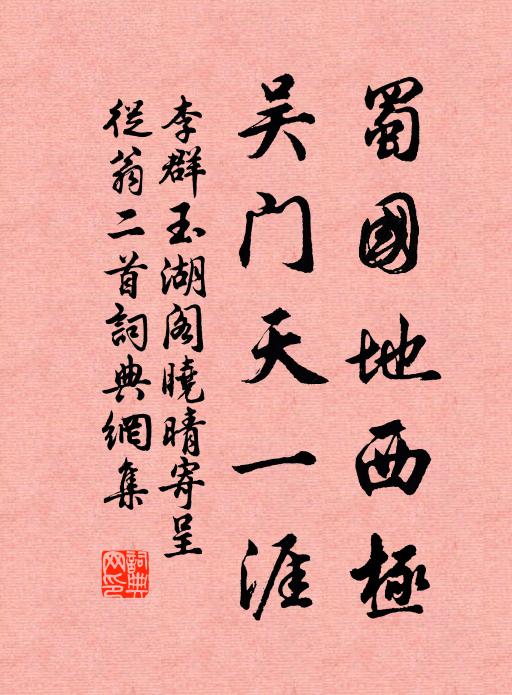 蜀國地西極
吴门天一涯
李群玉湖阁曉晴寄呈
從翁二首詞典網集
詞典
网印